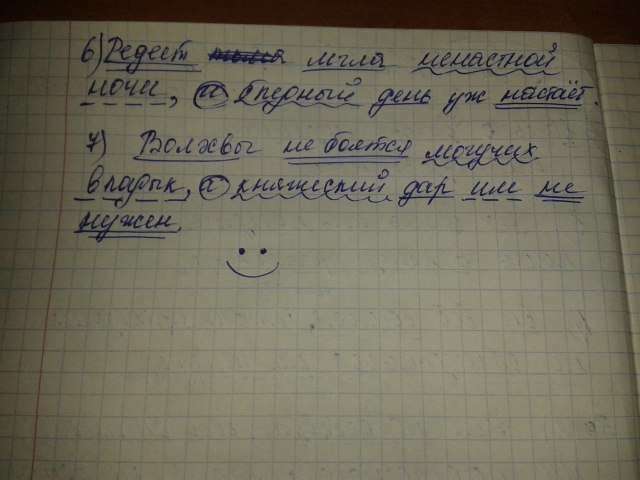 6) Редеет мгла ненастной
ночи, и бледный день уж настаёт.
7) Волхвы не боятся могучих
владык, а княжеский дар им не
нужен.